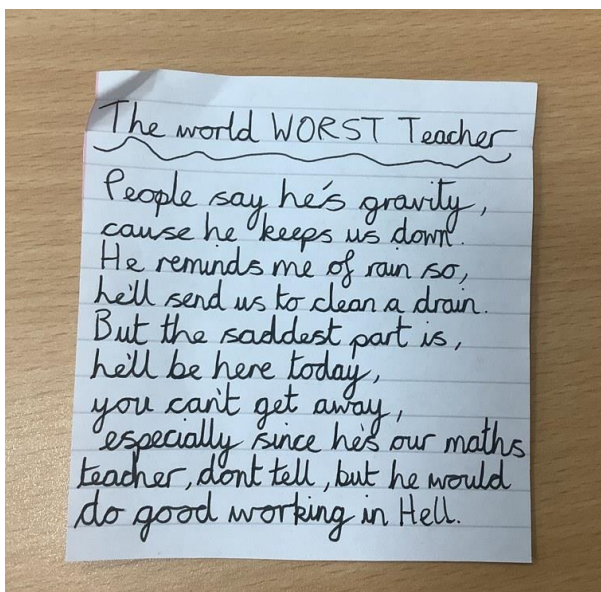 The world WORST Teacher
People say he's gravity,
cause he keeps us down.
He reminds me of rain so,
he'll send us to clean a drain.
But the saddest part is,
he'll be here today,
you can't get away,
especially since he's our maths
teacher, dont tell, but he would
do good working in Hell.